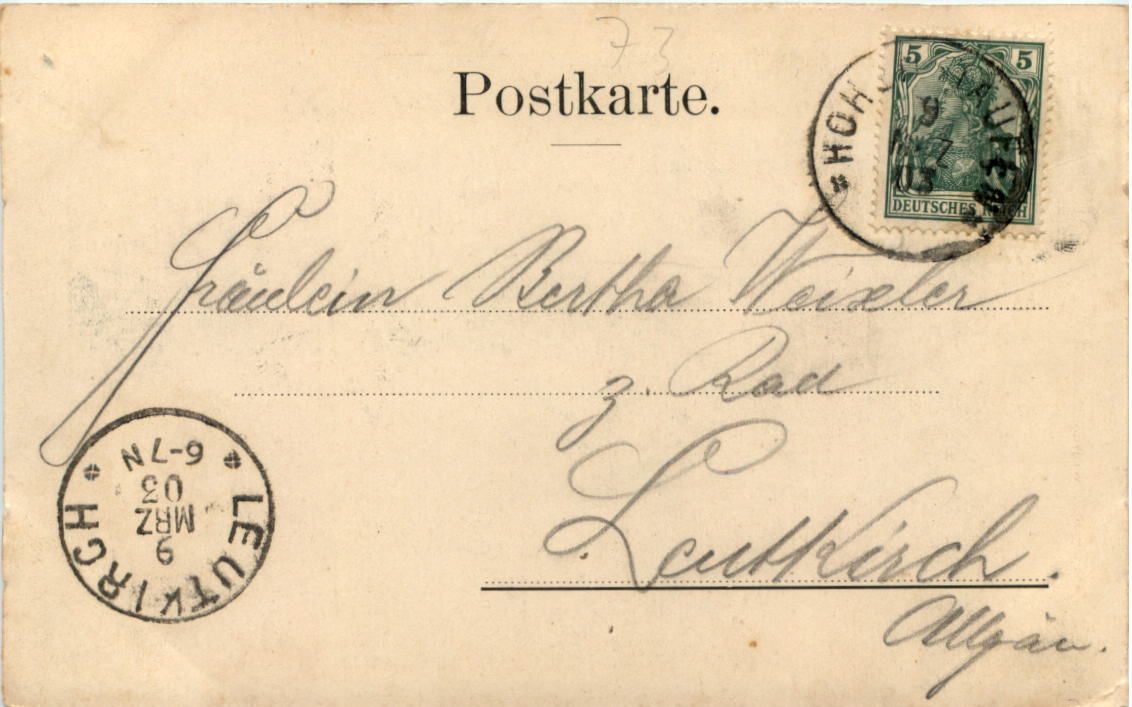 73
Postkarte.
5 5
DEUTSCHES REICH
9
MRZ
03
Fräulein Bertha Weixler
z. Rad
Leutkirch.
Allgäu.
LEUTKIRCH
9
MRZ
03
6-7N